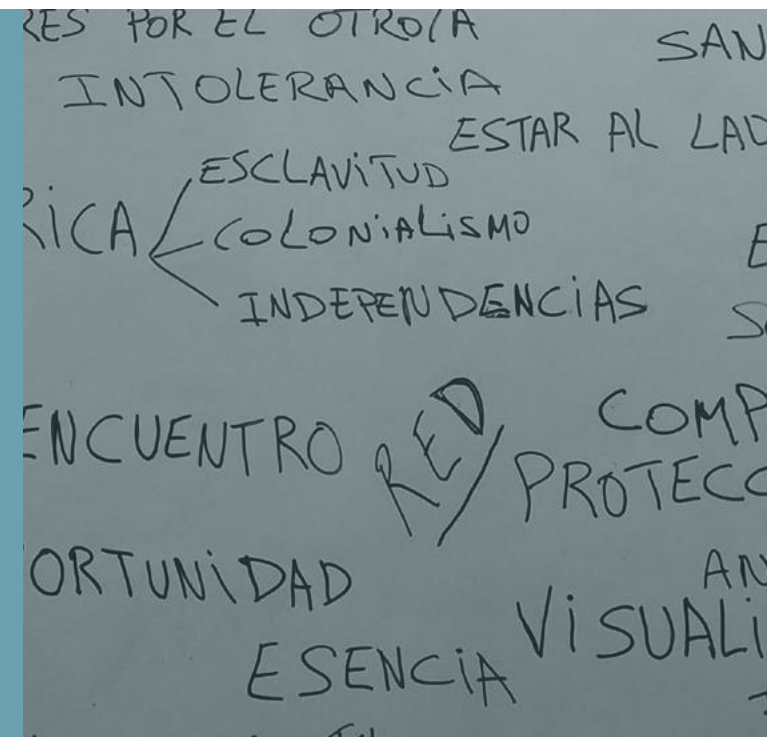 RES POR EL OTRO/A
SAN
INTOLERANCiA
ESTAR AL LAD
ESCLAViTUD
RiCA
COLONiALiSMO
E
INDEPENDENCiAS
S
ENCUENTRO
RED
COMP
PROTECC
ORTUNiDAD
AN
ViSUALi
ESENCiA